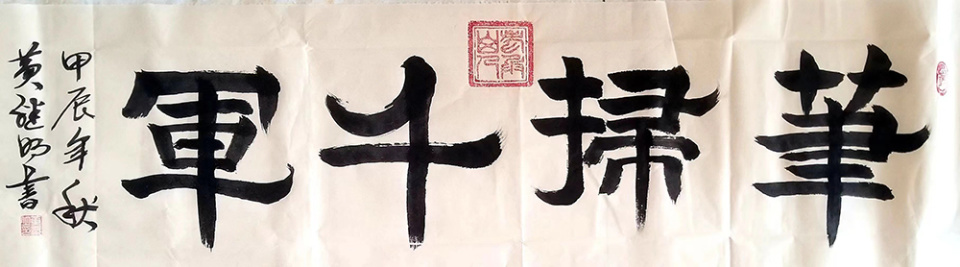 筆掃千軍
甲辰年秋
黄继明書